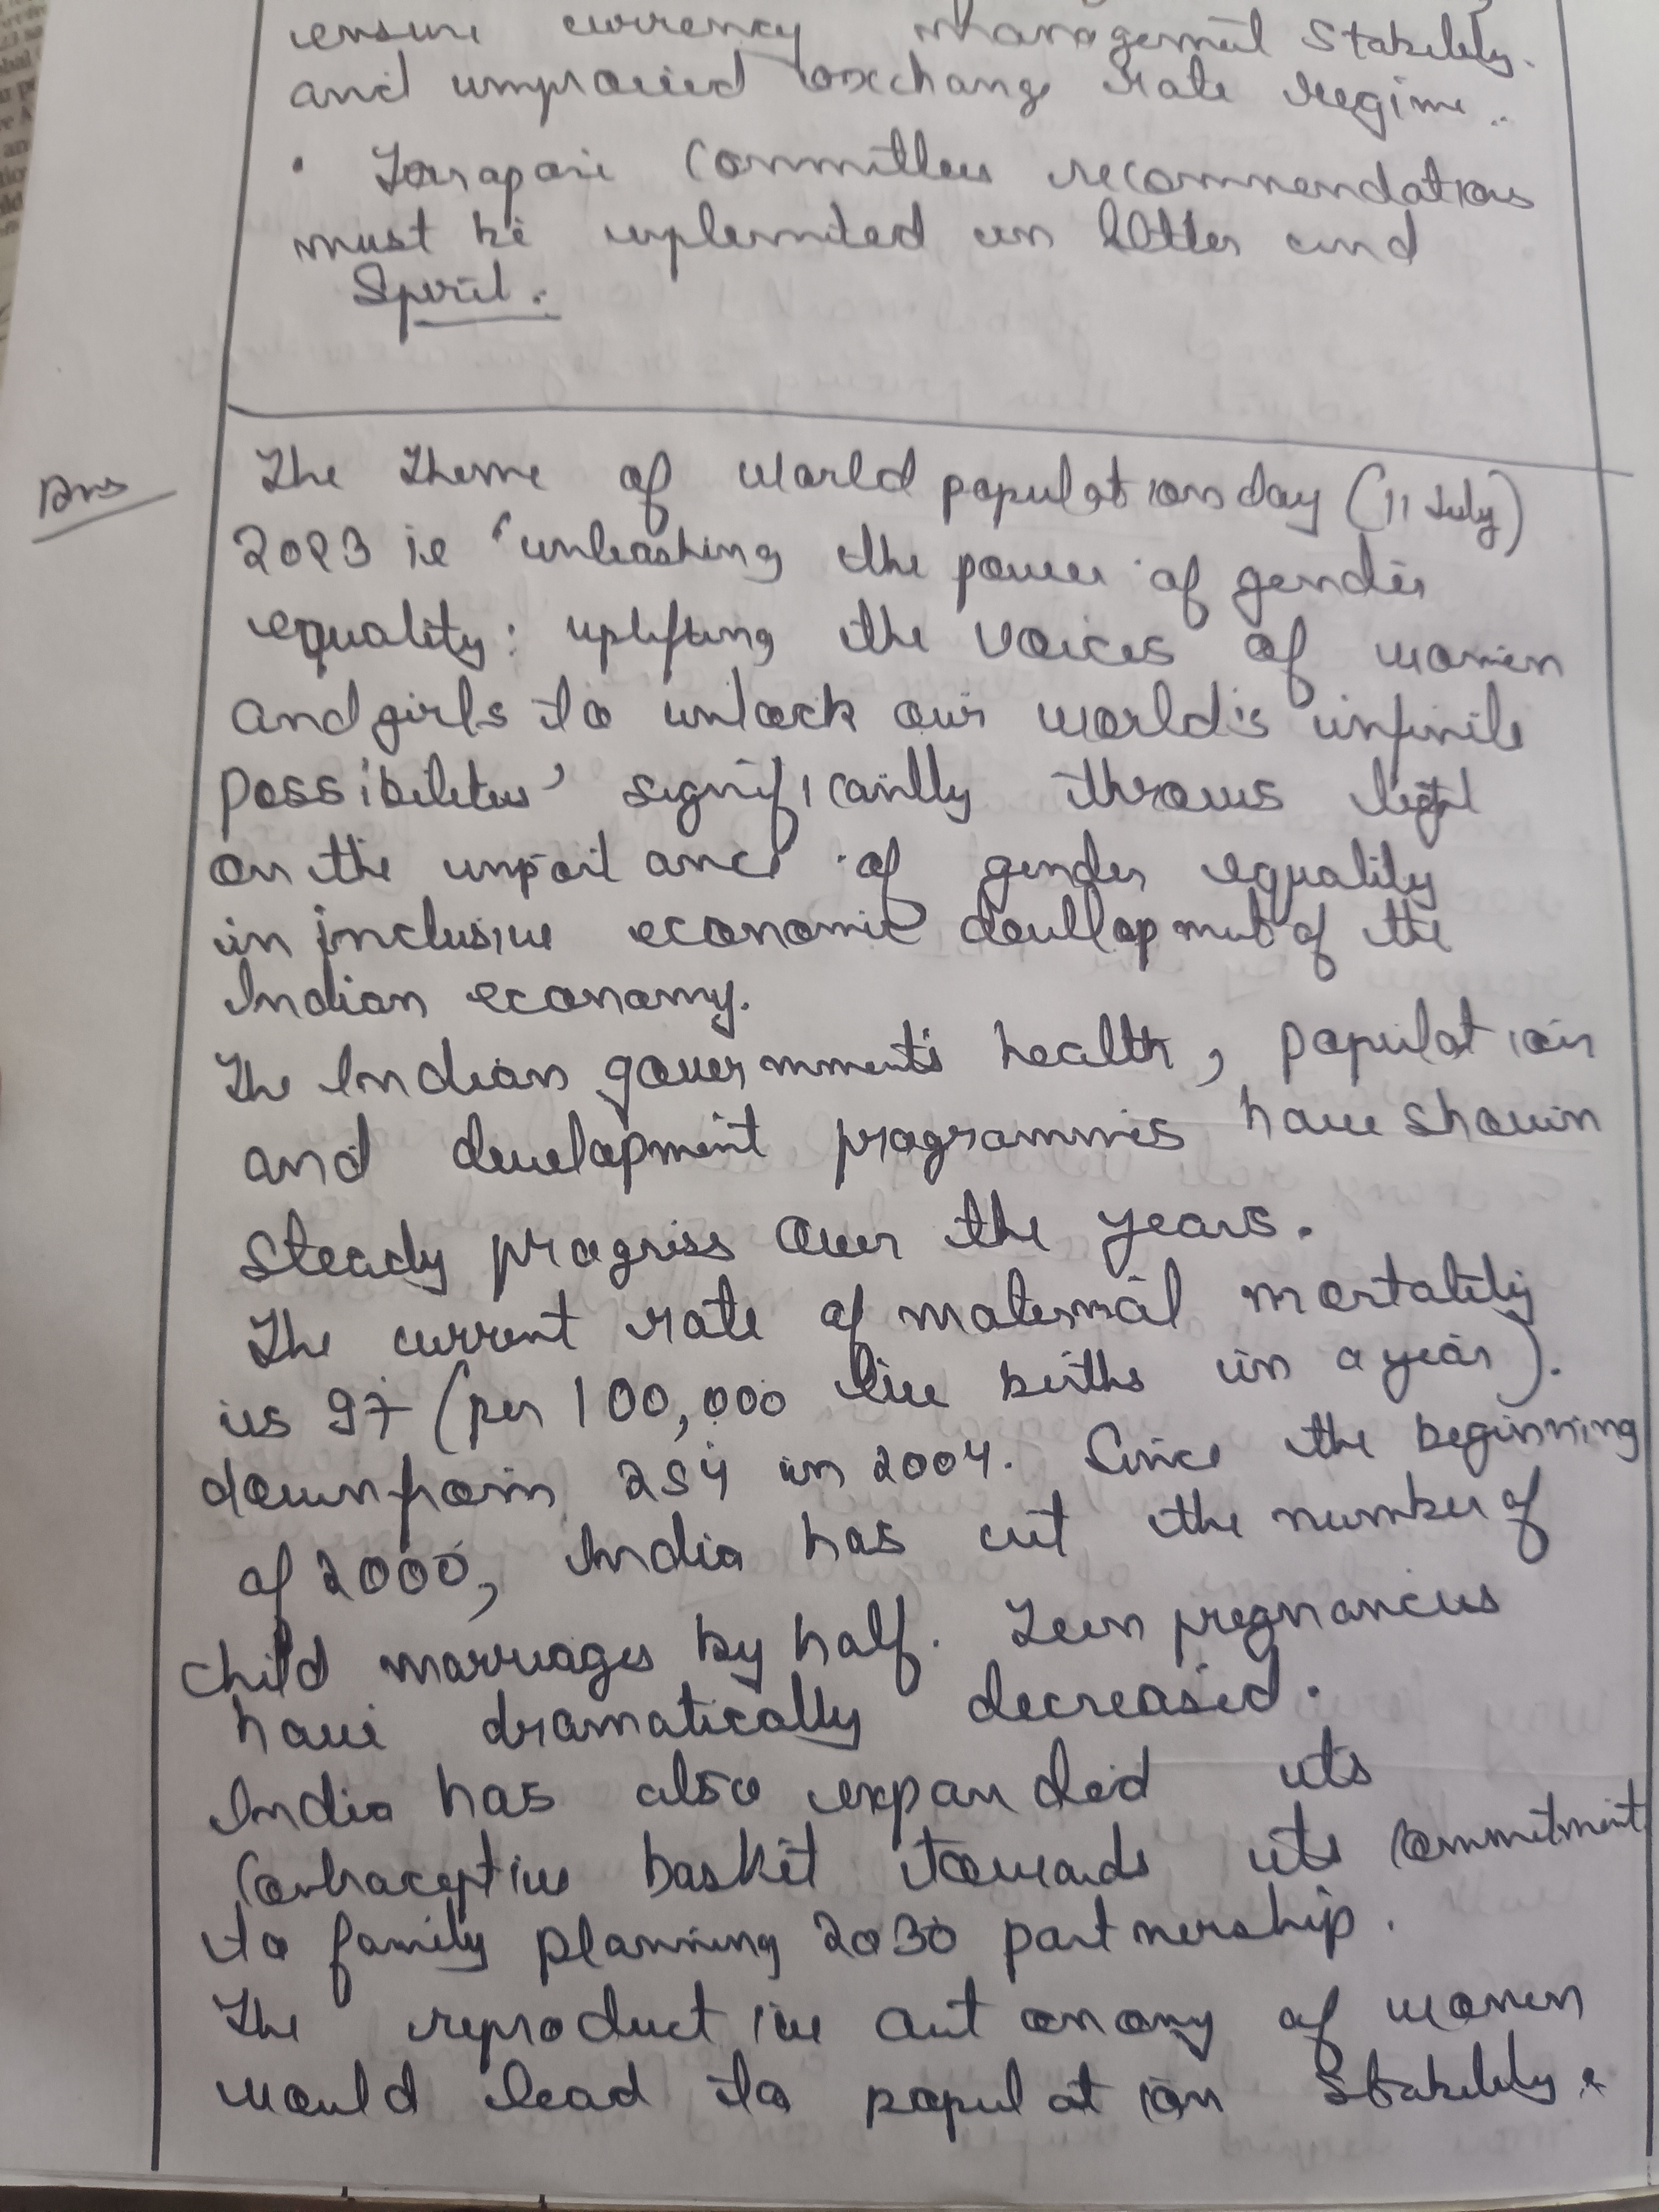 ensure currency management stability.
and improved exchange rate regime..
• Tarapore Committees recommendations
must be implemented in letter and
Spirit.
Ans
The theme of world population day (11 July)
2023 ie 'unleashing the power of gender
equality: uplifting the voices of women
and girls to unlock our world's infinite
possibilities' significantly throws light
on the importance of gender equality
in inclusive economic development of the
Indian economy.
The Indian government's health, population
and development programmes have shown
steady progress over the years.
The current rate of maternal mortality
is 97 (per 100,000 live births in a year).
down from 254 in 2004. Since the beginning
of 2000, India has cut the number of
child marriages by half. Teen pregnancies
have dramatically decreased.
India has also expanded its
Contraceptive basket towards its commitment
to family planning 2030 partnership.
The reproductive autonomy of women
would lead to population stability.